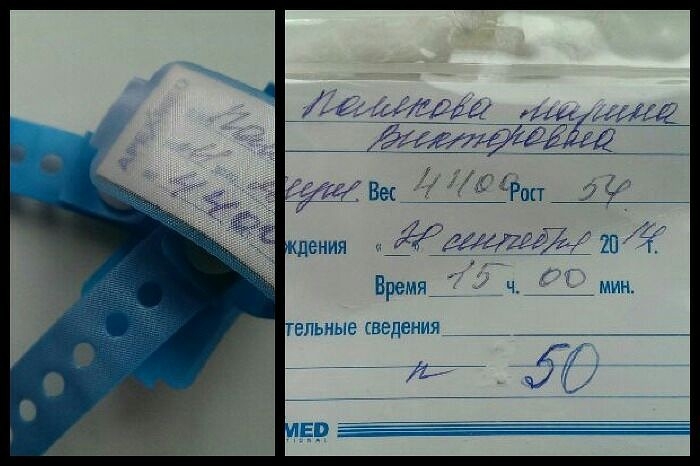 APEXMED
4400
Полякова Марина
Викторовна
Вес 4400 Рост 54
ждения « 28 » сентября 2014г.
Время 15 ч. 00 мин.
тельные сведения
п 50
MED